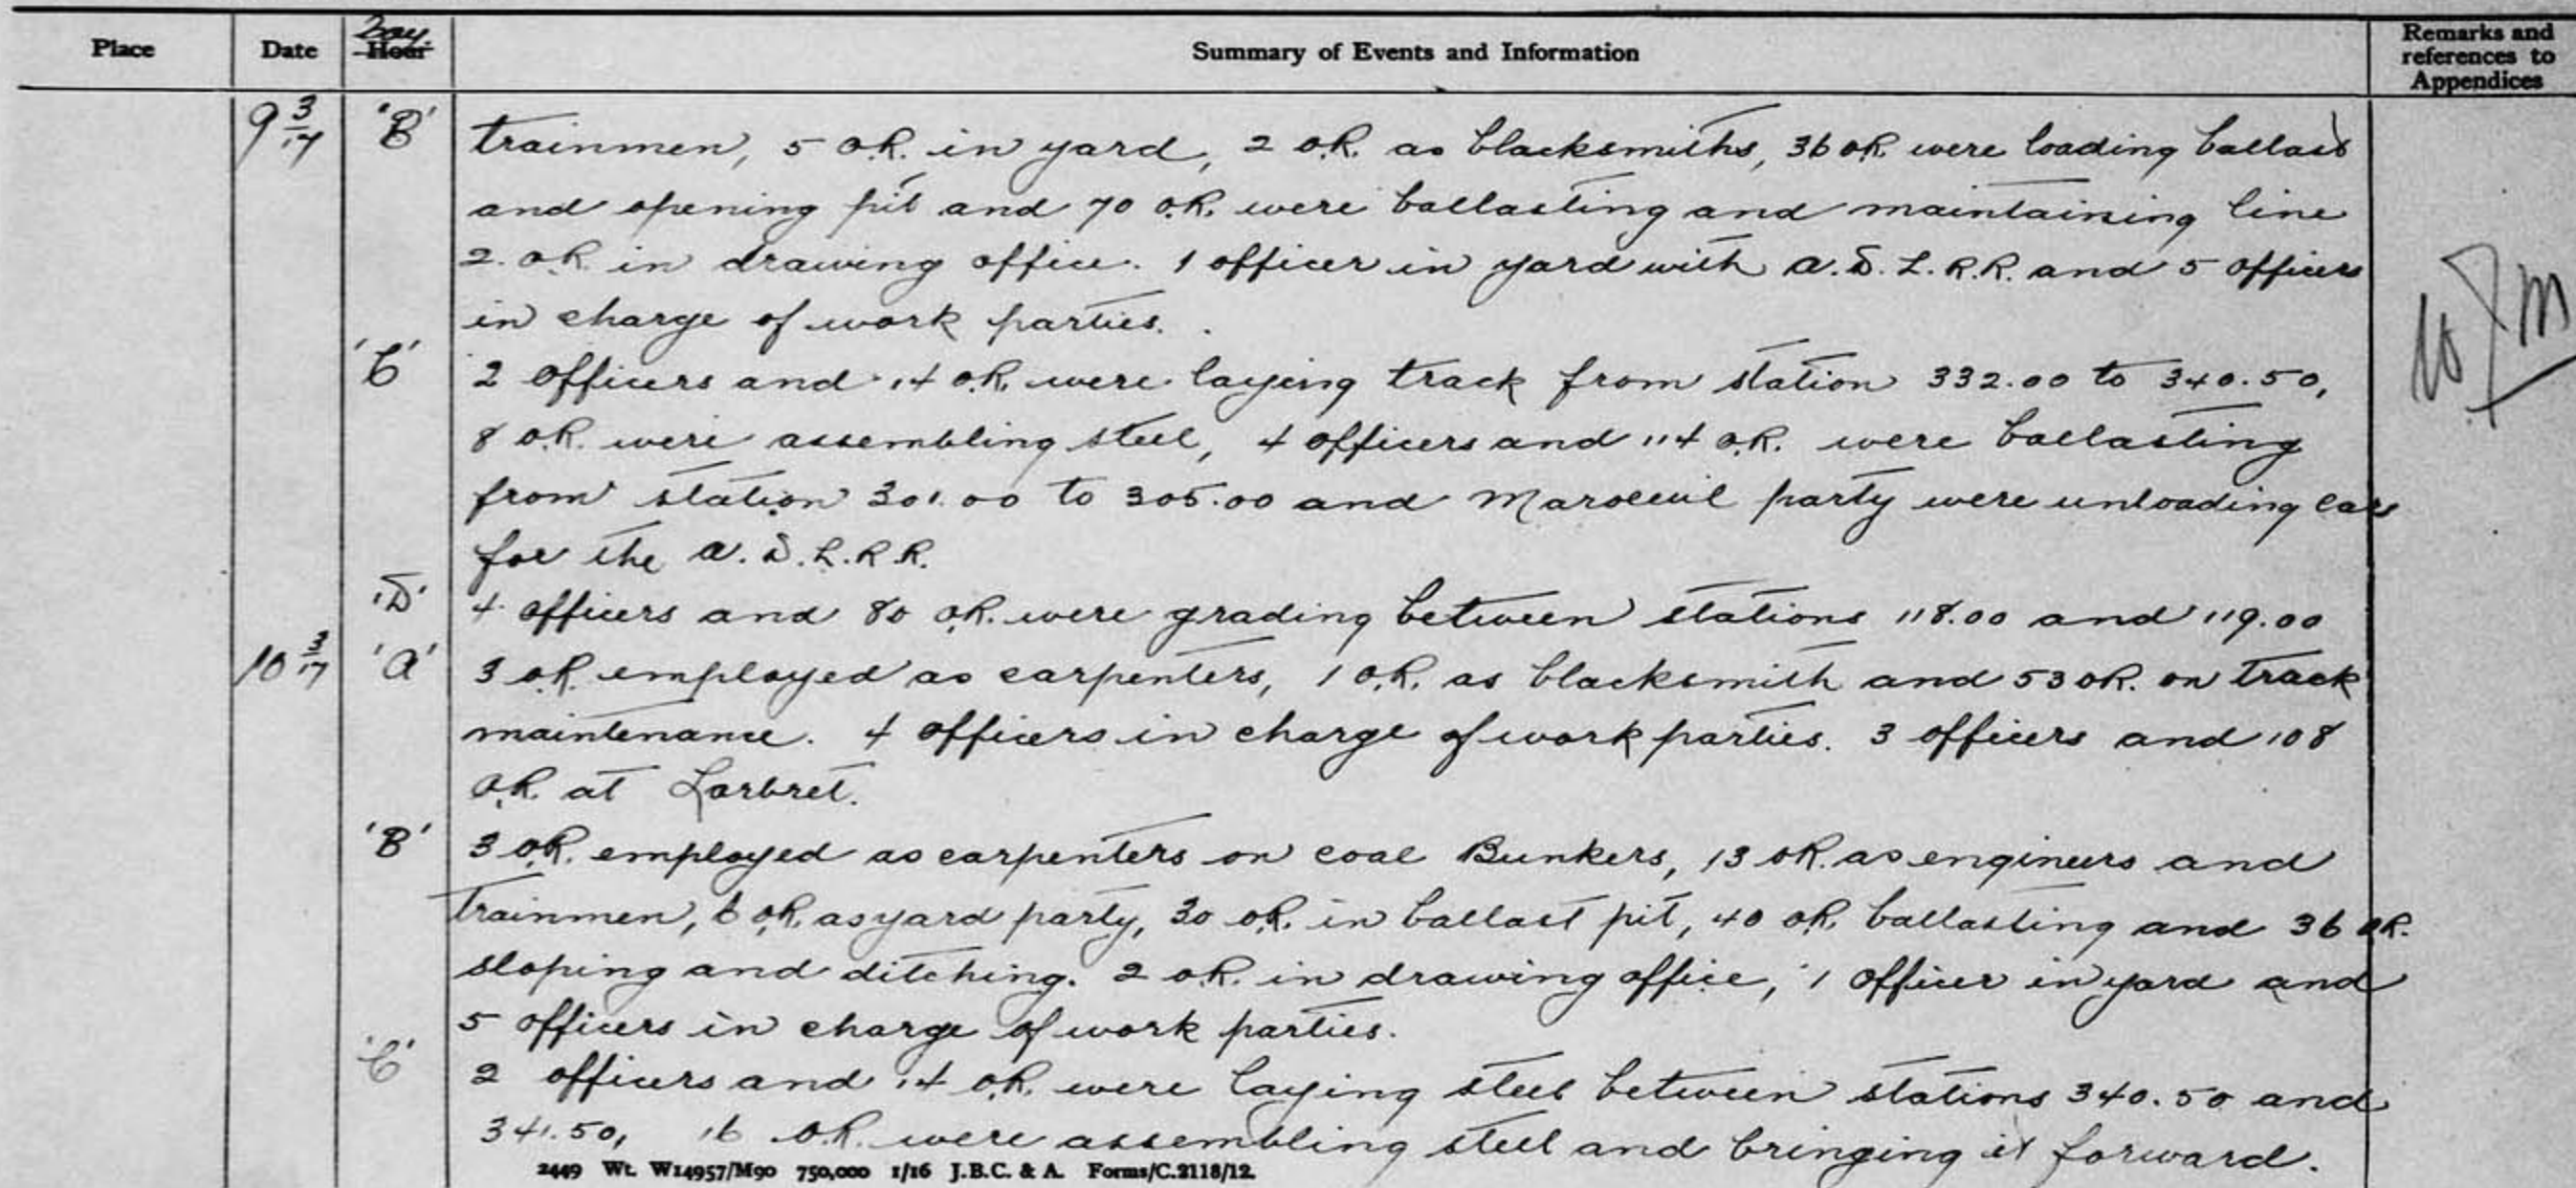 Place Date Coy. Hour Summary of Events and Information Remarks and references to Appendices
9 3/17 'B' trainmen, 5 O.R. in yard, 2 O.R. as blacksmiths, 36 OR were loading ballast
and opening pit and 70 O.R. were ballasting and maintaining line
2. O.R. in drawing office. 1 officer in yard with A.D.L.R.R. and 5 officers
in charge of work parties.
'C' 2 officers and 14 O.R. were laying track from station 332.00 to 340.50,
8 O.R. were assembling steel, 4 officers and 114 O.R. were ballasting
from station 301.00 to 305.00 and Maroeuil party were unloading cars
for the A.D.L.R.R.
'D' 4 officers and 80 O.R. were grading between stations 118.00 and 119.00
10 3/17 'A' 3 O.R. employed as carpenters, 1 O.R. as blacksmith and 53 OR. on track
maintenance. 4 officers in charge of work parties. 3 officers and 108
O.R. at Larbret.
'B' 3 O.R. employed as carpenters on coal Bunkers, 13 OR. as engineers and
trainmen, 6 O.R. as yard party, 30 O.R. in ballast pit, 40 O.R. ballasting and 36 OR.
sloping and ditching. 2 O.R. in drawing office, 1 officer in yard and
5 officers in charge of work parties.
'C' 2 officers and 14 O.R. were laying steel between stations 340.50 and
341.50, 16 O.R. were assembling steel and bringing it forward.
2449 Wt. W14957/M90 750,000 1/16 J.B.C. & A. Forms/C.2118/12.